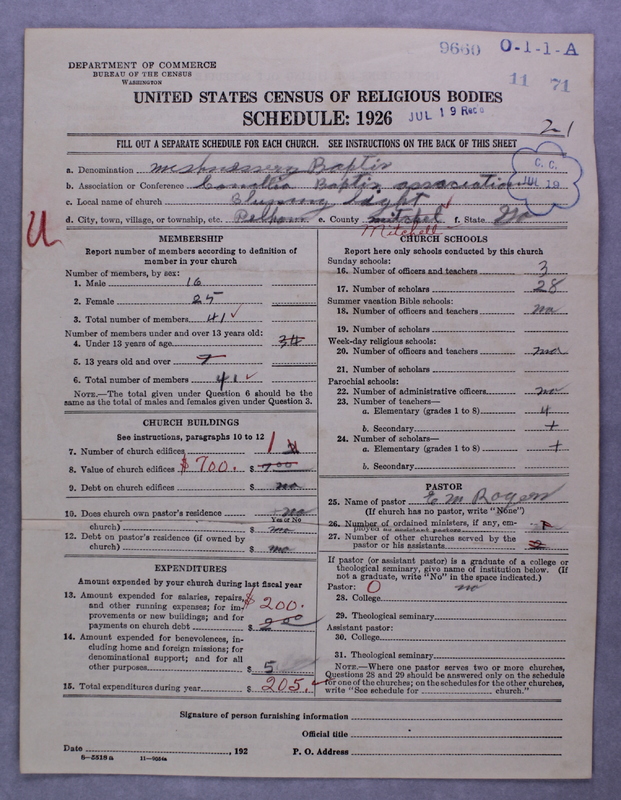 9660 0-1-1-A
DEPARTMENT OF COMMERCE
BUREAU OF THE CENSUS
WASHINGTON
11 71
UNITED STATES CENSUS OF RELIGIOUS BODIES
SCHEDULE: 1926
JUL 19 Rec'd
21
FILL OUT A SEPARATE SCHEDULE FOR EACH CHURCH. SEE INSTRUCTIONS ON THE BACK OF THIS SHEET
C. C.
JUL 19
a. Denomination Baptis
b. Association or Conference Baptis association
c. Local name of church
d. City, town, village, or township, etc. Pelham e. County mitchel f. State Ga
Mitchell
U
MEMBERSHIP
Report number of members according to definition of
member in your church
Number of members, by sex:
1. Male 16
2. Female 25
3. Total number of members 41 ✓
Number of members under and over 13 years old:
4. Under 13 years of age 34
5. 13 years old and over 7
6. Total number of members 41 ✓
NOTE.—The total given under Question 6 should be the
same as the total of males and females given under Question 3.
CHURCH BUILDINGS
See instructions, paragraphs 10 to 12
7. Number of church edifices 1
8. Value of church edifices $700. $ 700
9. Debt on church edifices $ no
10. Does church own pastor's residence no
Yes or No
church) $ no
12. Debt on pastor's residence (if owned by
church) $ no
EXPENDITURES
Amount expended by your church during last fiscal year
13. Amount expended for salaries, repairs,
and other running expenses; for im-
provements or new buildings; and for
payments on church debt $200. $ 200
14. Amount expended for benevolences, in-
cluding home and foreign missions; for
denominational support; and for all
other purposes $ 5
15. Total expenditures during year $ 205. ✓
CHURCH SCHOOLS
Report here only schools conducted by this church
Sunday schools:
16. Number of officers and teachers 3
17. Number of scholars 28
Summer vacation Bible schools:
18. Number of officers and teachers no
19. Number of scholars
Week-day religious schools:
20. Number of officers and teachers
21. Number of scholars
Parochial schools:
22. Number of administrative officers no
23. Number of teachers—
a. Elementary (grades 1 to 8) 4
b. Secondary +
24. Number of scholars—
a. Elementary (grades 1 to 8) +
b. Secondary
PASTOR
25. Name of pastor E M Rogers
(If church has no pastor, write "None")
26. Number of ordained ministers, if any, em-
ployed as assistant pastors
27. Number of other churches served by the
pastor or his assistants
If pastor (or assistant pastor) is a graduate of a college or
theological seminary, give name of institution below. (If
not a graduate, write "No" in the space indicated.)
Pastor: O no
28. College
29. Theological seminary
Assistant pastor:
30. College
31. Theological seminary
NOTE.—Where one pastor serves two or more churches,
Questions 28 and 29 should be answered only on the schedule
for one of the churches; on the schedules for the other churches,
write "See schedule for church."
Signature of person furnishing information
Official title
Date , 192 P. O. Address
8—5518a 11—9054a